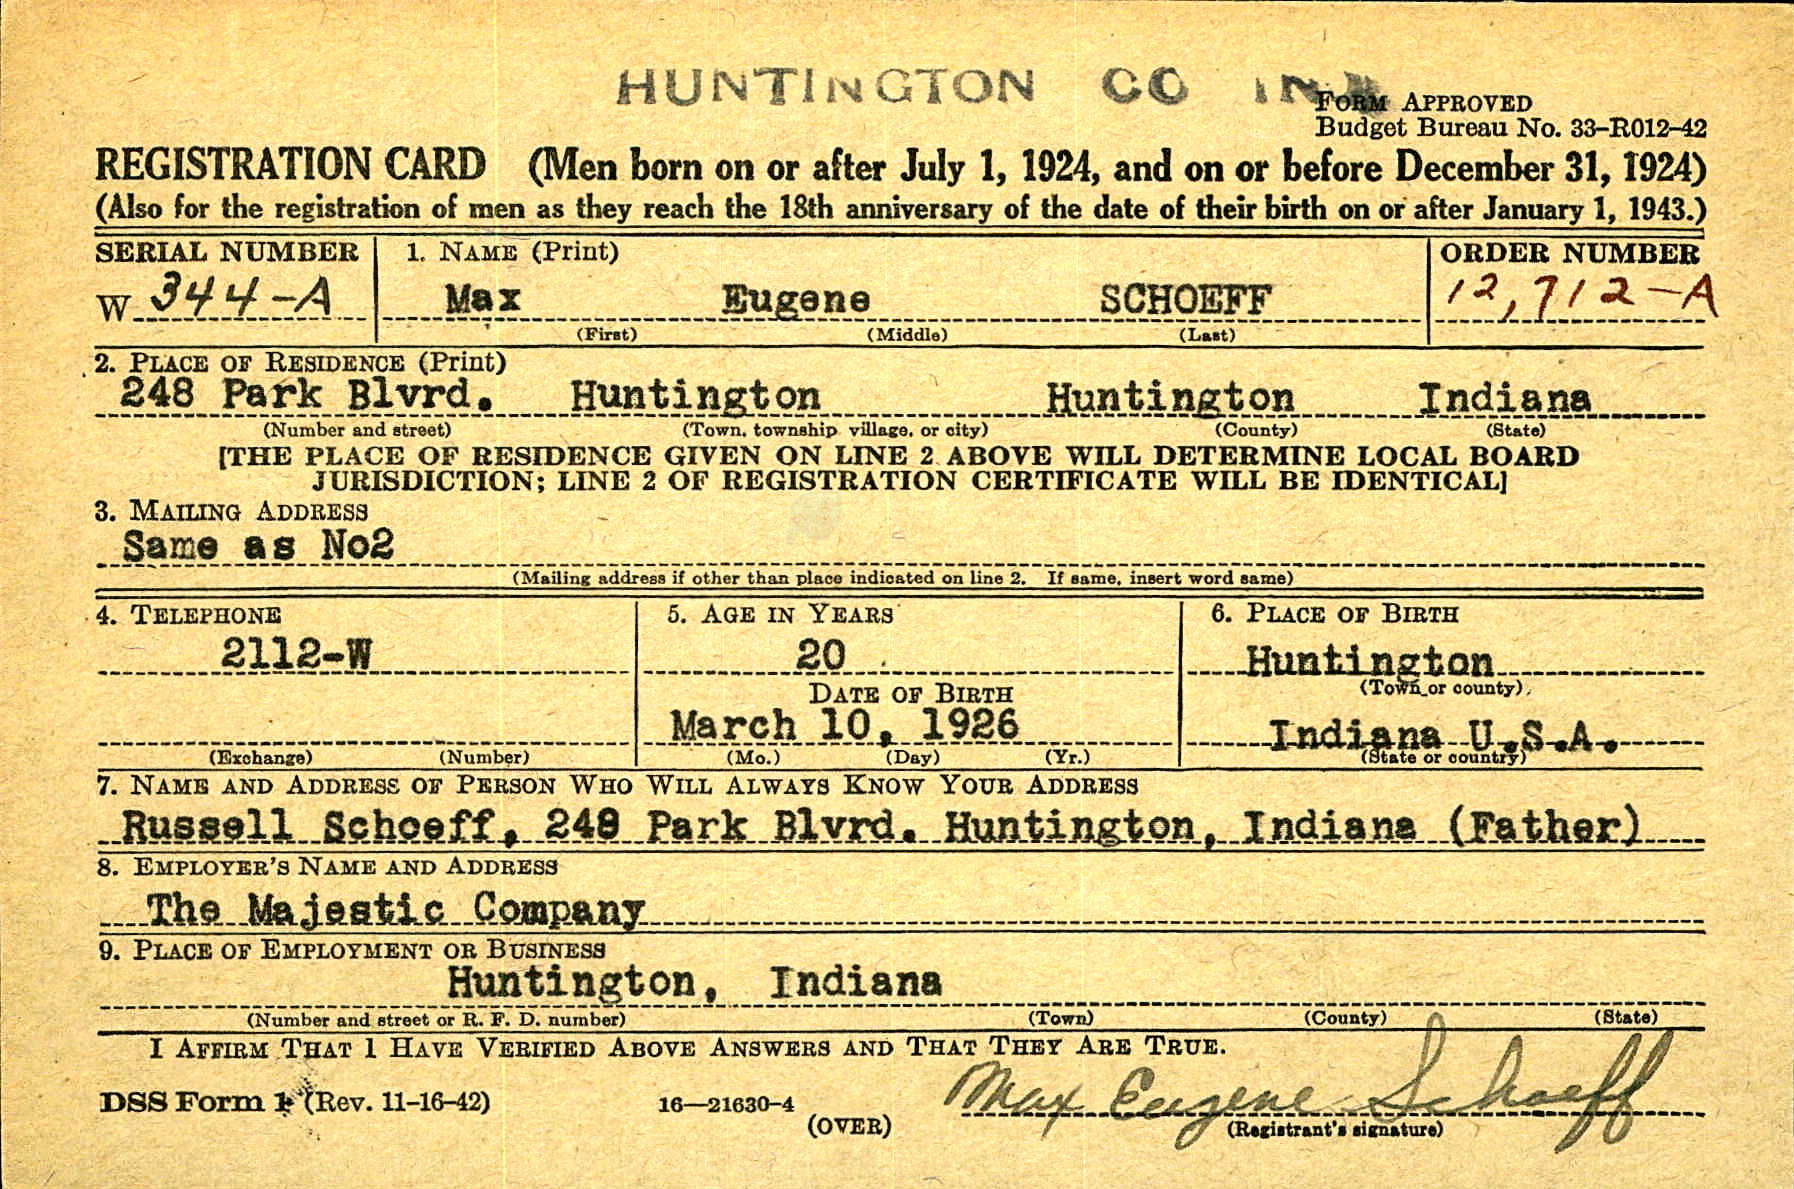 HUNTINGTON CO IND
FORM APPROVED
Budget Bureau No. 33–R012–42
REGISTRATION CARD (Men born on or after July 1, 1924, and on or before December 31, 1924)
(Also for the registration of men as they reach the 18th anniversary of the date of their birth on or after January 1, 1943.)
SERIAL NUMBER 1. NAME (Print) ORDER NUMBER
W 344-A Max Eugene SCHOEFF 12,712-A
(First) (Middle) (Last)
2. PLACE OF RESIDENCE (Print)
248 Park Blvrd. Huntington Huntington Indiana
(Number and street) (Town, township, village, or city) (County) (State)
[THE PLACE OF RESIDENCE GIVEN ON LINE 2 ABOVE WILL DETERMINE LOCAL BOARD
JURISDICTION; LINE 2 OF REGISTRATION CERTIFICATE WILL BE IDENTICAL]
3. MAILING ADDRESS
Same as No2
(Mailing address if other than place indicated on line 2. If same, insert word same)
4. TELEPHONE 5. AGE IN YEARS 6. PLACE OF BIRTH
2112-W 20 Huntington
DATE OF BIRTH (Town or county)
March 10, 1926 Indiana U.S.A.
(Exchange) (Number) (Mo.) (Day) (Yr.) (State or country)
7. NAME AND ADDRESS OF PERSON WHO WILL ALWAYS KNOW YOUR ADDRESS
Russell Schoeff, 248 Park Blvrd. Huntington, Indiana (Father)
8. EMPLOYER'S NAME AND ADDRESS
The Majestic Company
9. PLACE OF EMPLOYMENT OR BUSINESS
Huntington, Indiana
(Number and street or R. F. D. number) (Town) (County) (State)
I AFFIRM THAT I HAVE VERIFIED ABOVE ANSWERS AND THAT THEY ARE TRUE.
DSS Form 1 (Rev. 11–16–42) 16—21630-4 Max Eugene Schoeff
(OVER) (Registrant's signature)